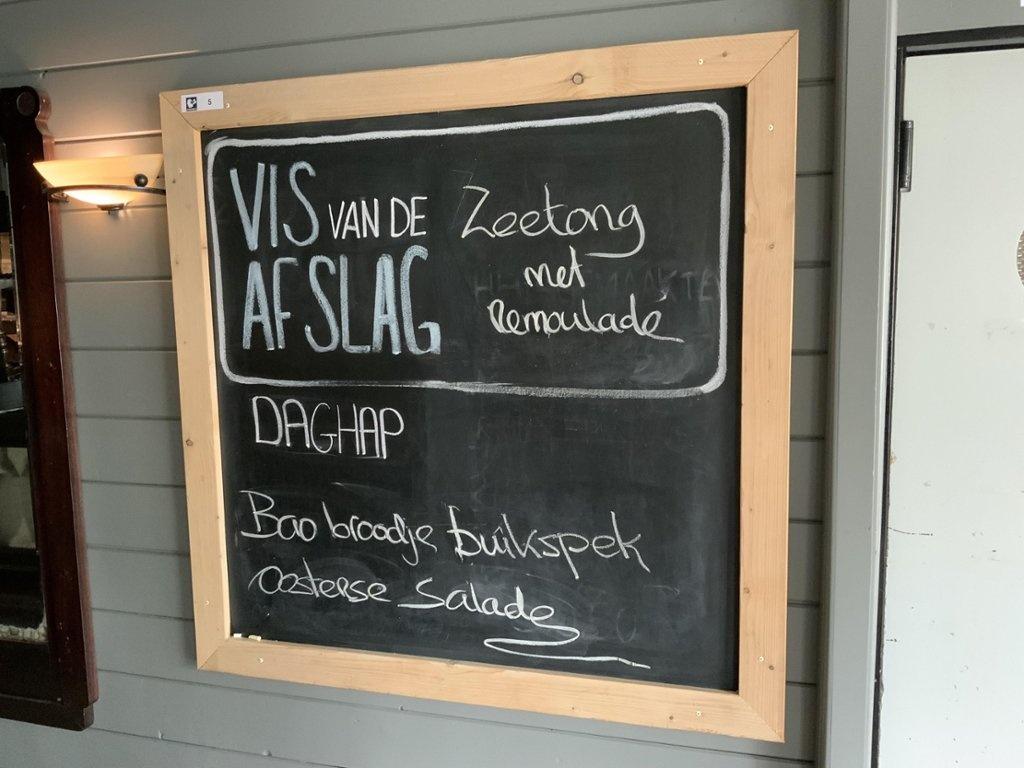 5
VIS VAN DE
AFSLAG
Zeetong
met
Remoulade
DAGHAP
Bao broodje buikspek
oosterse salade